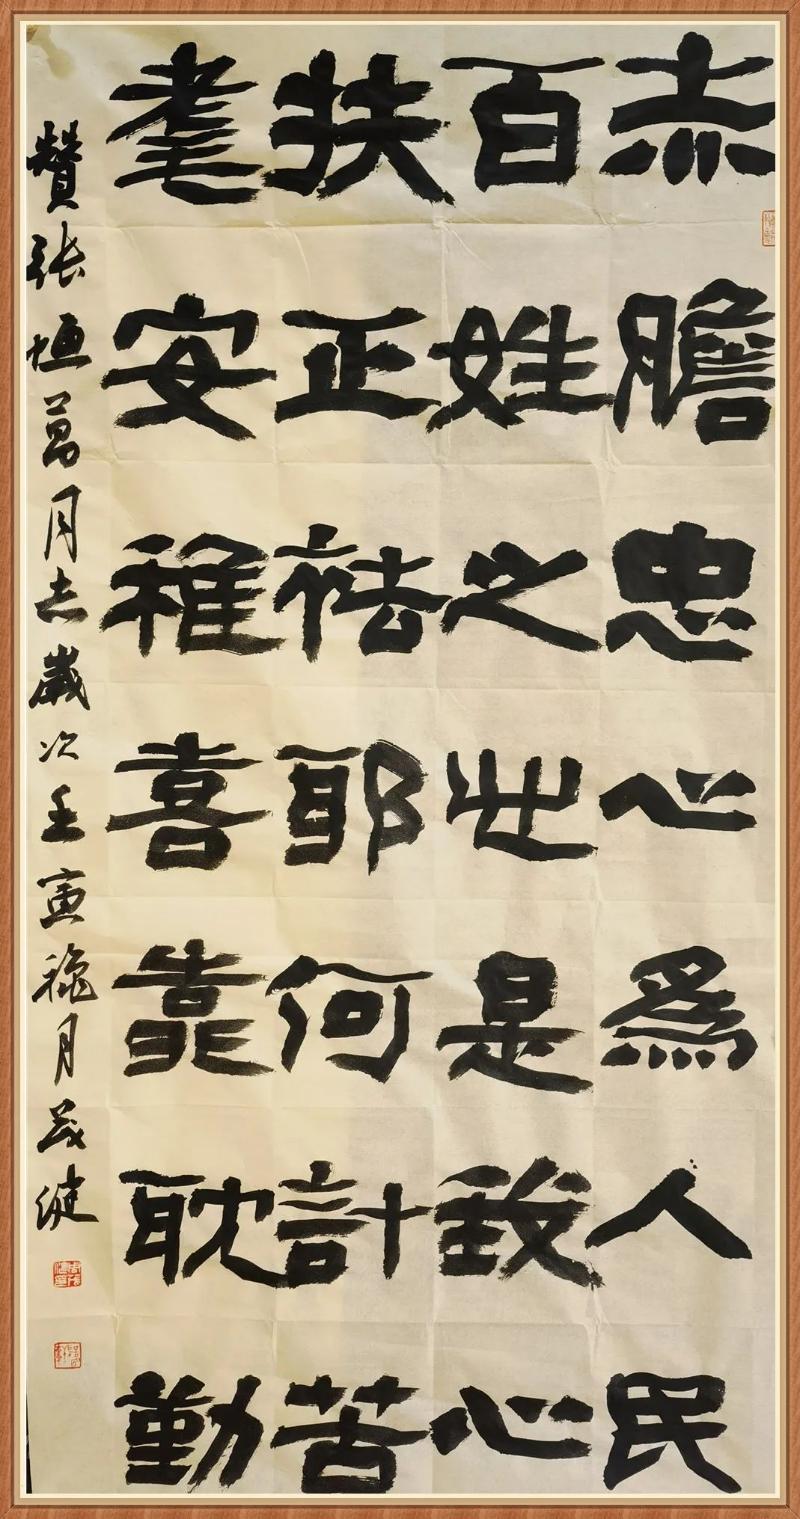 赤膽忠心爲人民
百姓之是心
扶正祛耶何計苦
耄安稚喜靠耽勤
贊張垣萬同志歲次壬寅龝月茂健